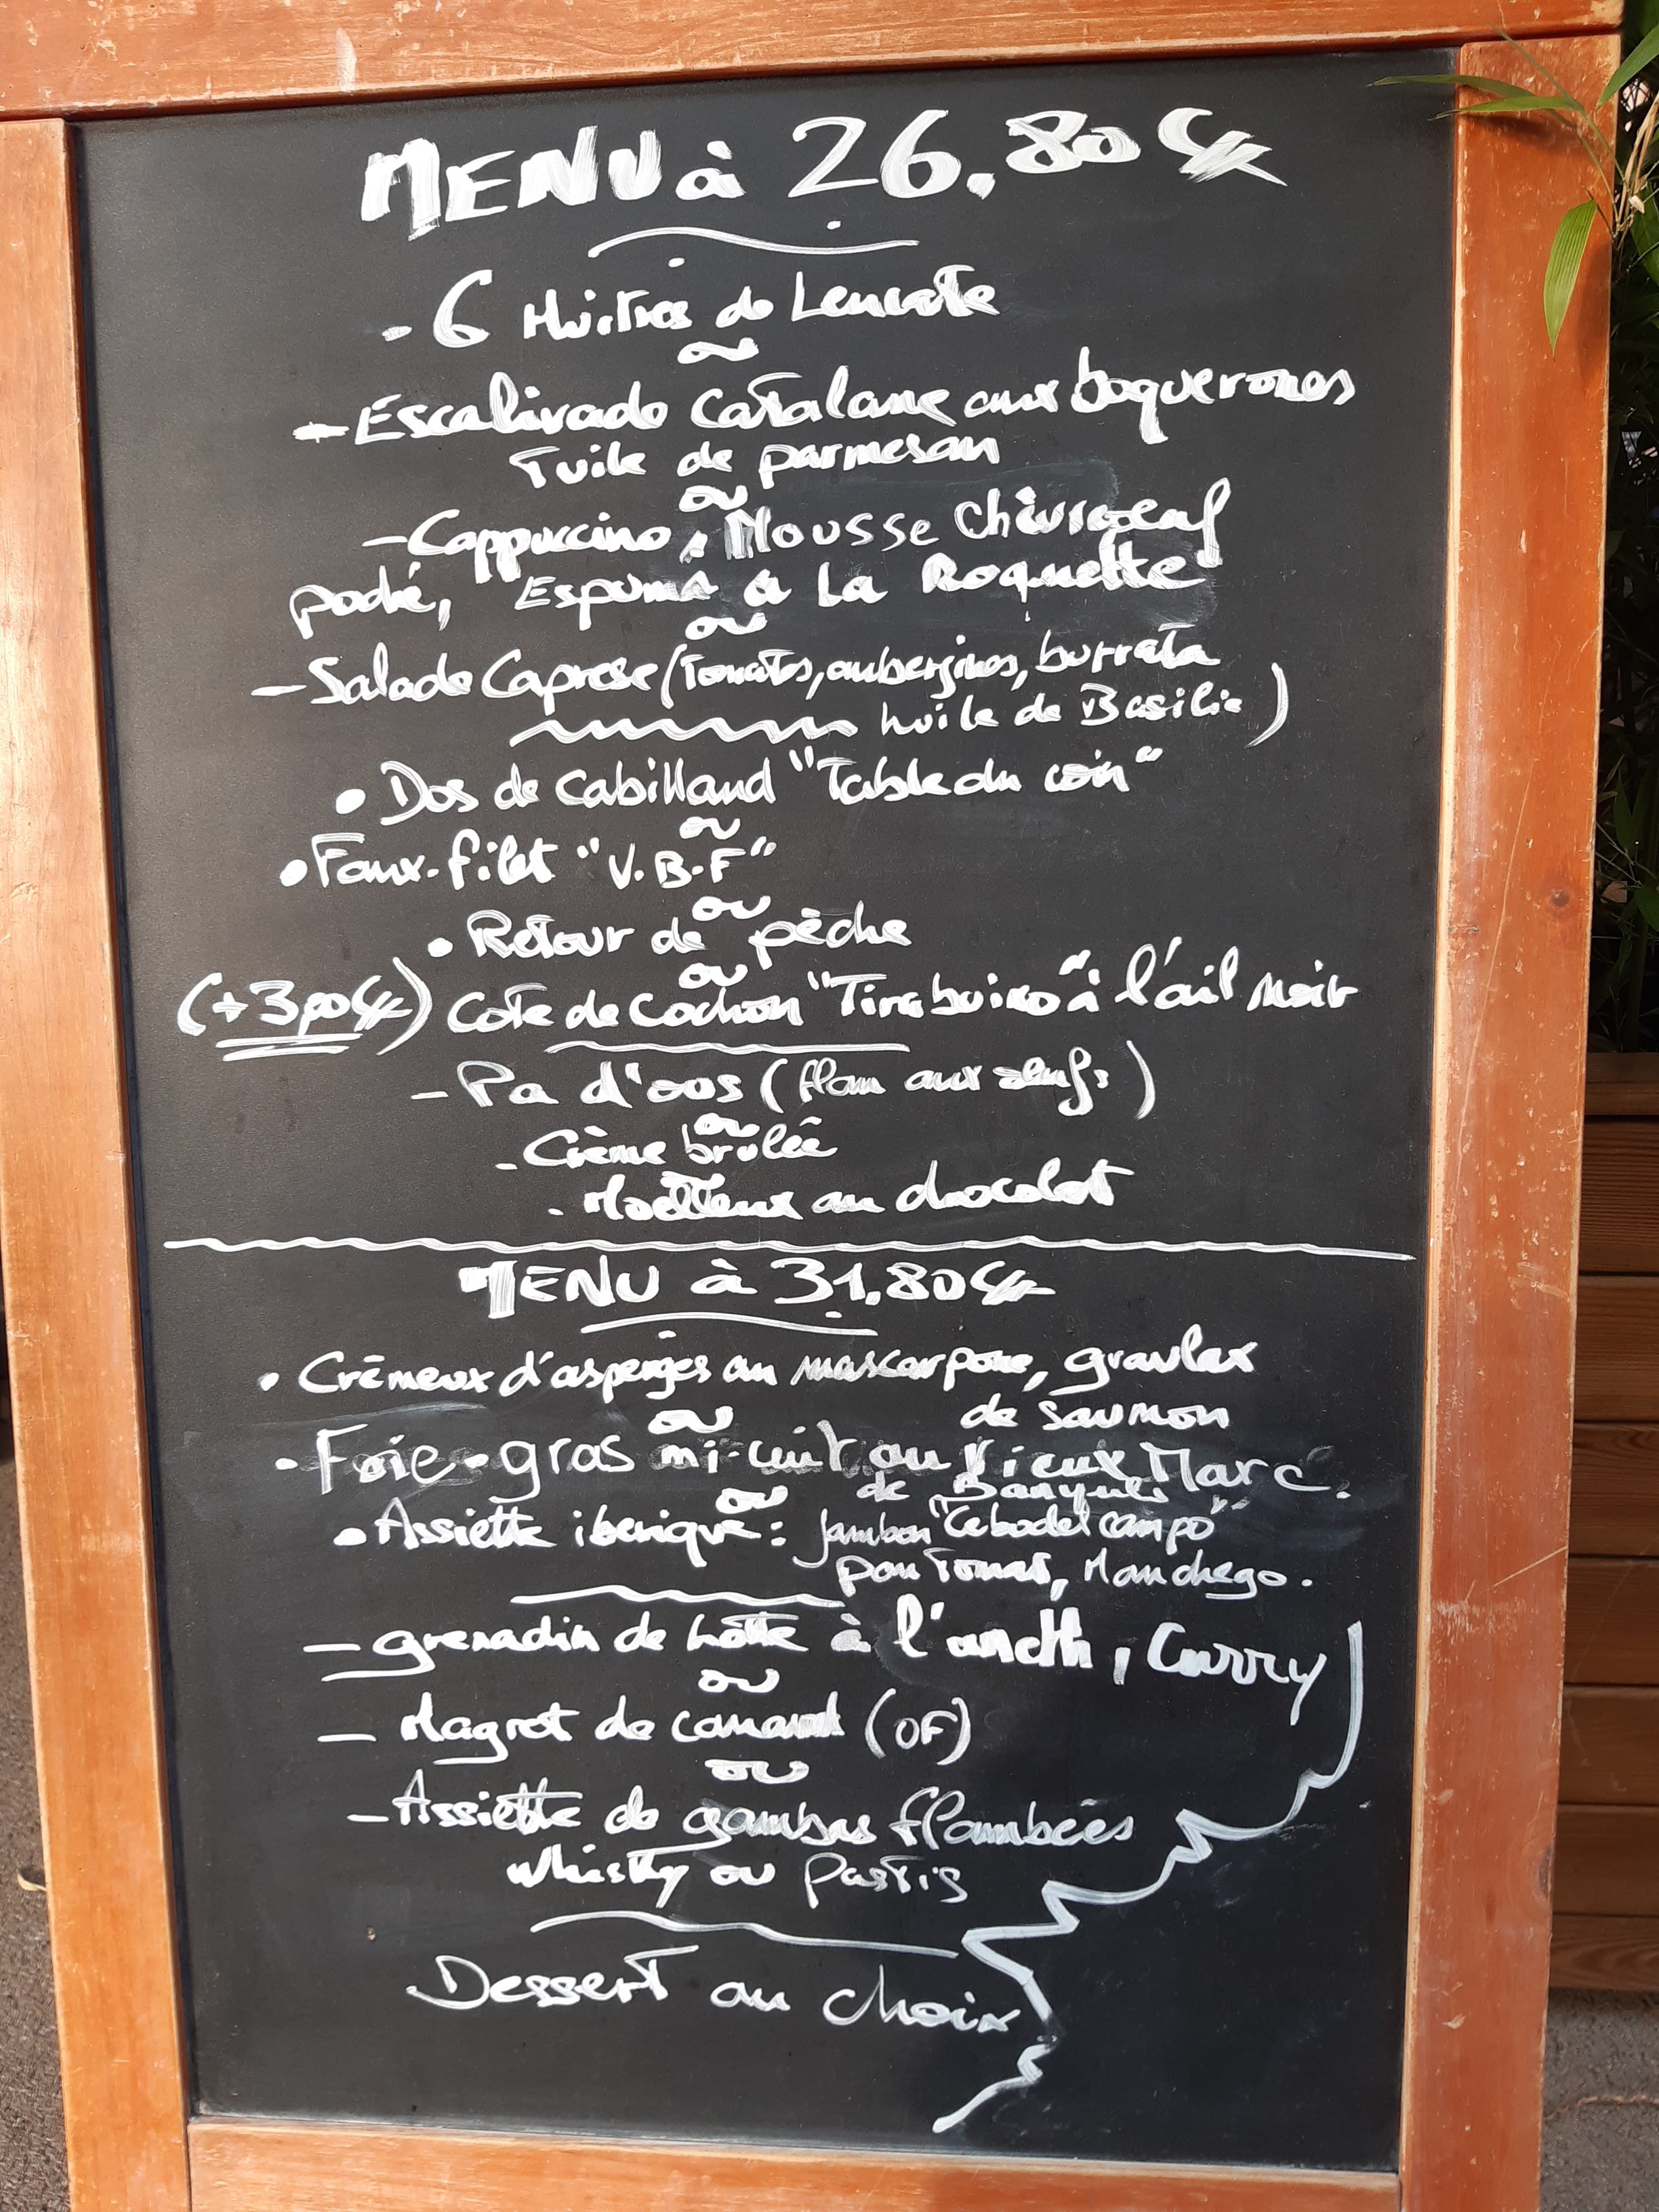 MENU à 26.80€
- 6 Huitres de Leucate
ou
- Escalivade Catalane aux boquerones
Tuile de parmesan
ou
- Cappuccino, Mousse Chèvre œuf
poché, Espuma à La Roquette
ou
- Salade Caprese (Tomates, aubergines, burrata
huile de Basilic)
• Dos de cabillaud "Table du coin"
ou
• Faux-filet "V.B.F"
ou
• Retour de pêche
ou
(+3,00€) Côte de Cochon "Tirabuixo" à l'ail noir
- Pa d'oos (flan aux œufs)
ou
- Crème brûlée
- Moelleux au chocolat
MENU à 31.80€
• Crèmeux d'asperges au mascarpone, gravlax
ou de saumon
- Foie-gras mi-cuit au Vieux Marc.
ou de Banyuls
• Assiette iberique: Jambon "Cebo del campo"
pan Tomat, Manchego.
- grenadin de lotte à l'aneth, Curry
ou
- Magret de canard (OF)
ou
- Assiette de gambas flambées
whisky ou Pastis
Dessert au choix